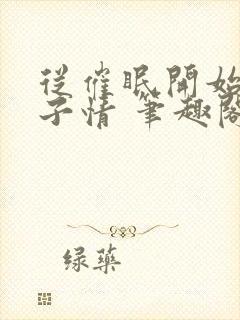 從催眠開始
子情 筆趣閣
緑藥